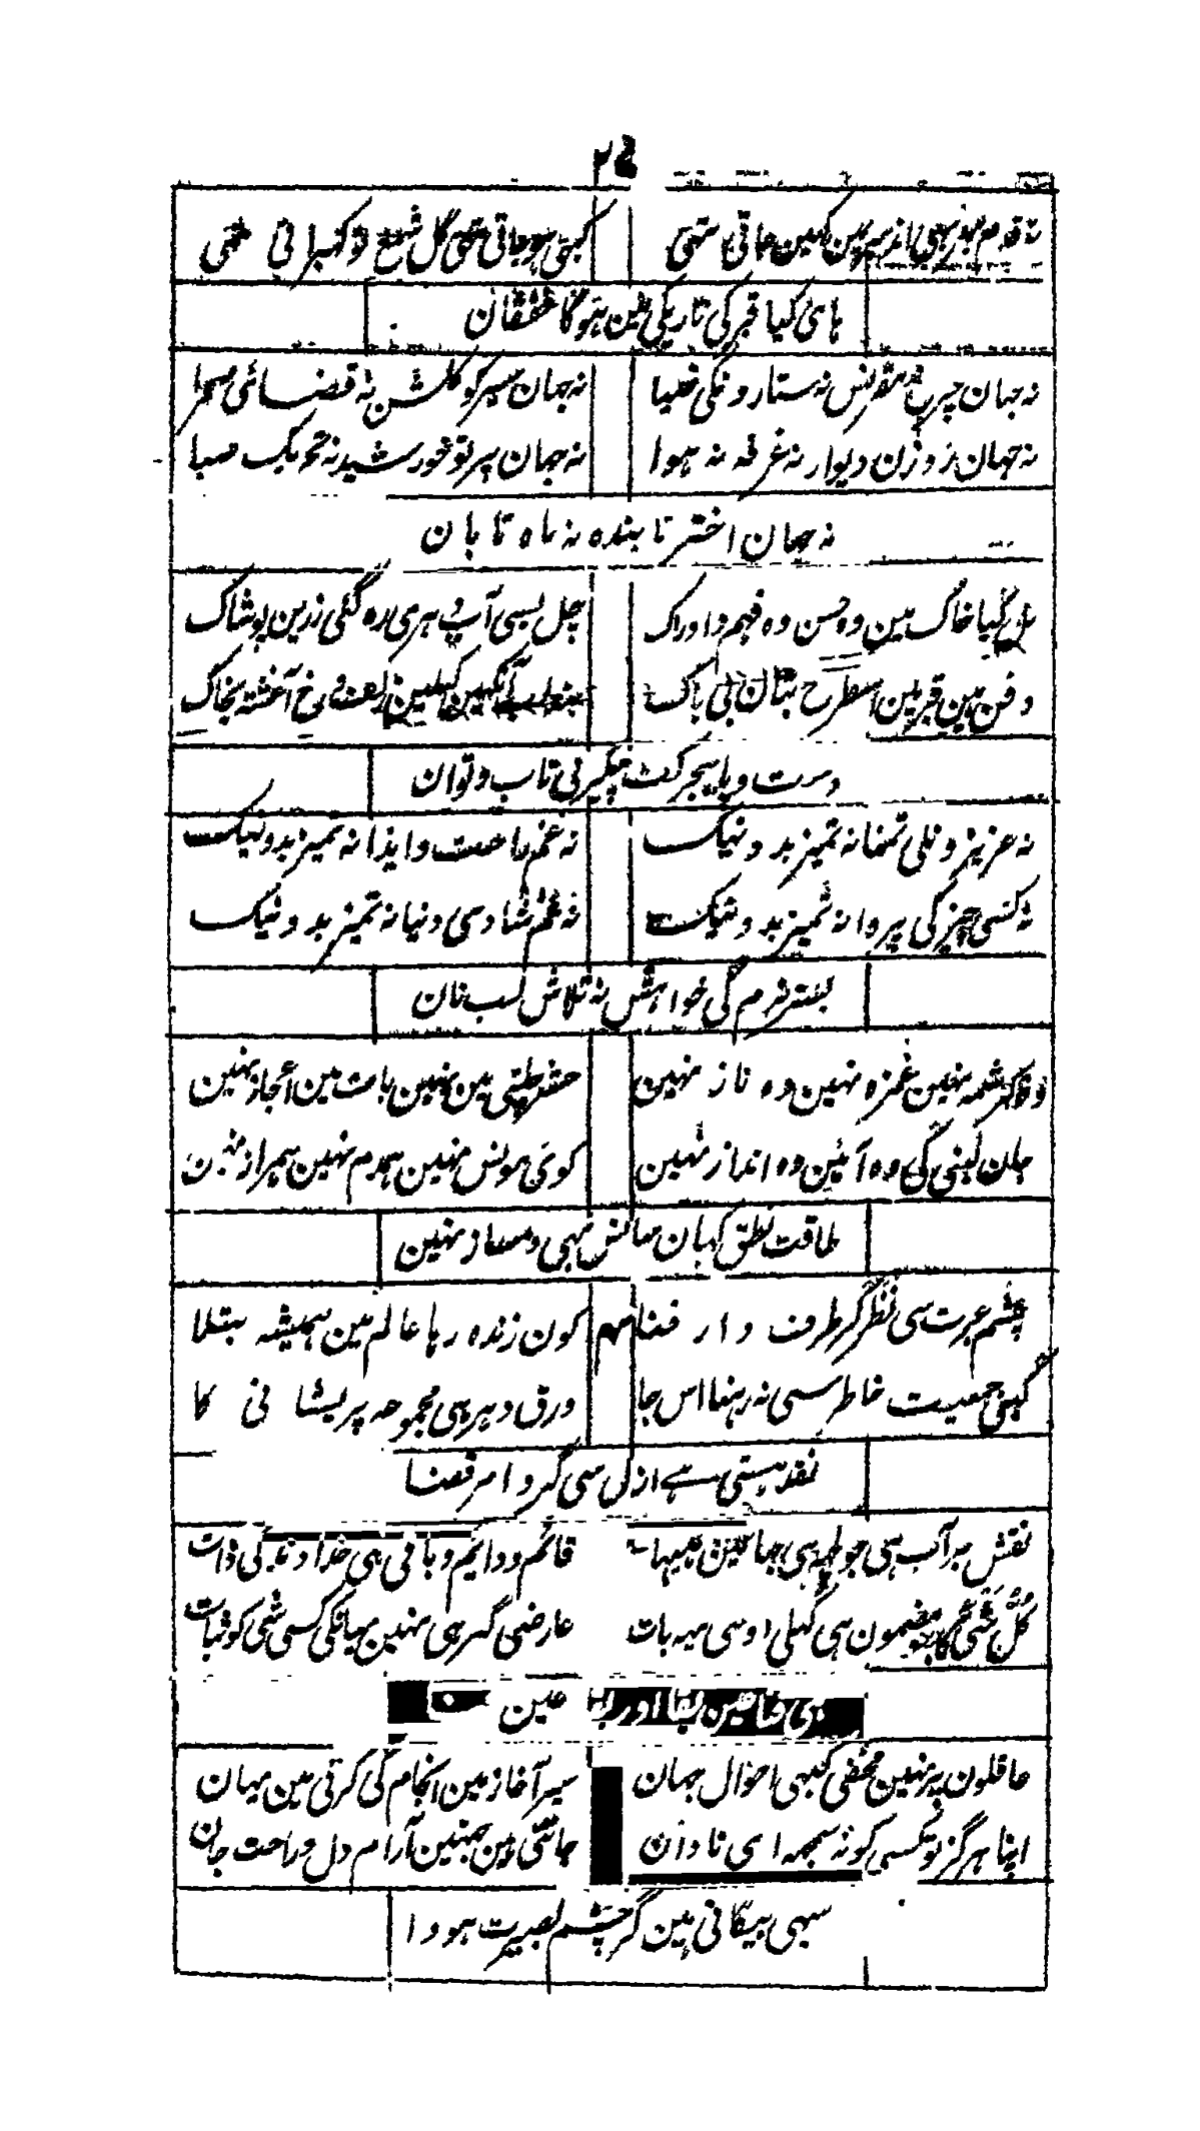 ۲۴
نہ قدم بہر بہی اندہیرمین کہین جاتی تہی کبہی ہو جاتی تہی گل شمع تو گہبراتی تہی
ہای کیا قبر کی تاریکی مین ہوگا خفقان
نہ جہان چرخ مقرنس نہ ستارونکی ضیا نہ جہان سیر کو گلشن نہ فضائی صحرا
نہ جہان روزن دیوار نہ غرفہ نہ ہوا نہ جہان پرتو خورشید نہ تحریک صبا
نہ جہان اختر تابندہ نہ ماہ تابان
مل گیا خاک مین وہ حسن وہ فہم و ادراک چل بسی آپ دہری رہ گئی زرین پوشاک
دفن ہین قبر مین اسطرح بتان بی باک آنکہین کہلین زلف و رخ آغشتہ بخاک
دست و پا بیحرکت جگر بی تاب و توان
نہ عزیزونکی تمنا نہ تمیز بد و نیک نہ غم راحت و ایذا نہ تمیز بد و نیک
نہ کسی چیز کی پروا نہ تمیز بد و نیک نہ غم شادی دنیا نہ تمیز بد و نیک
بستر نرم کی خواہش نہ تلاش لب نان
کرشمہ نہین غمزہ نہین وہ ناز نہین حشر چلنی مین نہین بات مین اعجاز نہین
جان لینی کی وہ آئین وہ انداز نہین کوئی مونس نہین ہمدم نہین ہمراز نہین
طاقت نطق کہان سانس بہی دمساز نہین
چشم عبرت سی نظر کر طرف دار فنا کون زندہ رہا عالم مین ہمیشہ بتلا
کبہی جمعیت خاطر سی نہ رہنا اس جا ورق دہر ہی مجموعہ پریشانی کا
نقد ہستی ہے ازل سی گرو امر قضا
نقش بر آب ہی جو جہان مین ہیہات قائم و دائم و باقی ہی خداوند کی ذات
کل شی کا جو مضمون ہی کہلی اوسی یہ بات عارضی گہر ہی نہین یہانکی کسی شی کو ثبات
مین بقا اور مین
عاقلون پر نہین مخفی کبہی احوال جہان سیر آغاز مین انجام کی کرتی ہین یہان
اپنا ہرگز تو کسی کو نہ سمجہ ای نادان جانتی ہین جنہین آرام دل و راحت جان
سبہی بیگانی ہین گر چشم بصیرت ہو وا